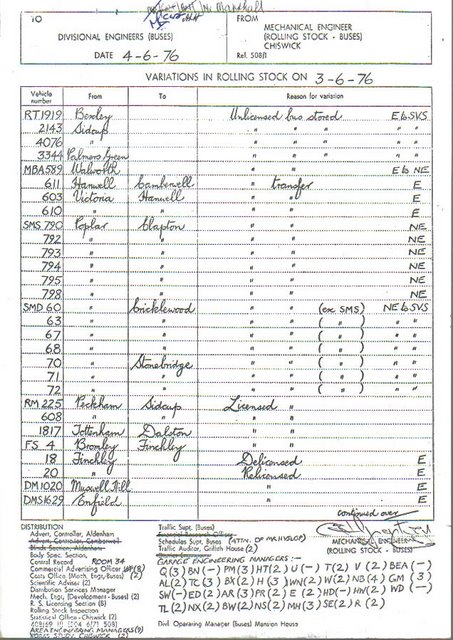 TO
DIVISIONAL ENGINEERS (BUSES)
DATE 4-6-76
FROM
MECHANICAL ENGINEER
(ROLLING STOCK - BUSES)
CHISWICK
Ref. 508/1
VARIATIONS IN ROLLING STOCK ON 3-6-76
Vehicle number From To Reason for variation
RT1919 Bexley Unlicensed bus stored E to SVS
2143 Sidcup " " " " "
4076 " " " " " "
3344 Palmers Green " " " " "
MBA589 Walworth " " E to NE
611 Hanwell Camberwell " transfer E
603 Victoria Hanwell " " E
610 " " " " E
SMS 790 Poplar Clapton " " NE
792 " " " " NE
793 " " " " NE
794 " " " " NE
795 " " " " NE
798 " " " " NE
SMD 60 " Cricklewood " " (exc SMS) NE to SVS
63 " " " " ( " ) " "
67 " " " " ( " ) " "
68 " " " " ( " ) " "
70 " Stonebridge " " ( " ) " "
71 " " " " ( " ) " "
72 " " " " ( " ) " "
RM 225 Peckham Sidcup Licensed "
608 " " " "
1817 Tottenham Dalston " "
FS 4 Bromley Finchley " "
18 Finchley Delicensed E
20 " Relicensed E
DM1020 Muswell Hill " E
DMS1629 Enfield " E
continued over
MECHANICAL ENGINEER
(ROLLING STOCK - BUSES)
DISTRIBUTION
Advert. Controller, Aldenham
Advert. Controller, Camberwell
Block Section, Aldenham
Body Spec. Inspection
Central Record ROOM 34
Commercial Advertising Officer
Costs Office (Mech. Engr. Buses) (2)
Scientific Adviser (2)
Distribution Services Manager
Mech. Engr. (Development - Buses) (2)
R. S. Licensing Section (5)
Rolling Stock Inspection
Statistical Office - Chiswick (2)
AREA ENGINEERING MANAGERS (9)
WORKS STUDY CHISWICK (2)
Traffic Supt. (Buses)
Schedules Supt. Buses
Traffic Auditor, Griffith House (2)
GARAGE ENGINEERING MANAGERS :-
Q (3) BN (-) PM (3) HT (2) U (-) T (2) V (2) BEA (-)
AL (2) TC (3) BX (2) H (3) WN (2) W (2) NB (4) GM (3)
SW (-) ED (2) AR (3) PR (2) E (2) HD (-) HW (2) WD (-)
TL (2) NX (2) BW (2) NS (2) MH (3) SE (2) R (2)
Civil Operating Manager (Buses) Mansion House